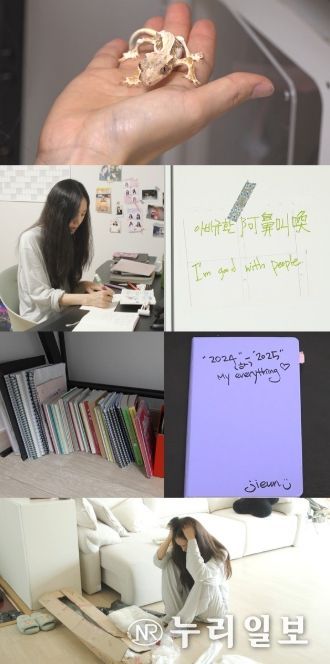 아비규환 阿鼻叫喚
I'm good with people.
"2024" - "2025"
My everything♡
jieun
NR 누리일보